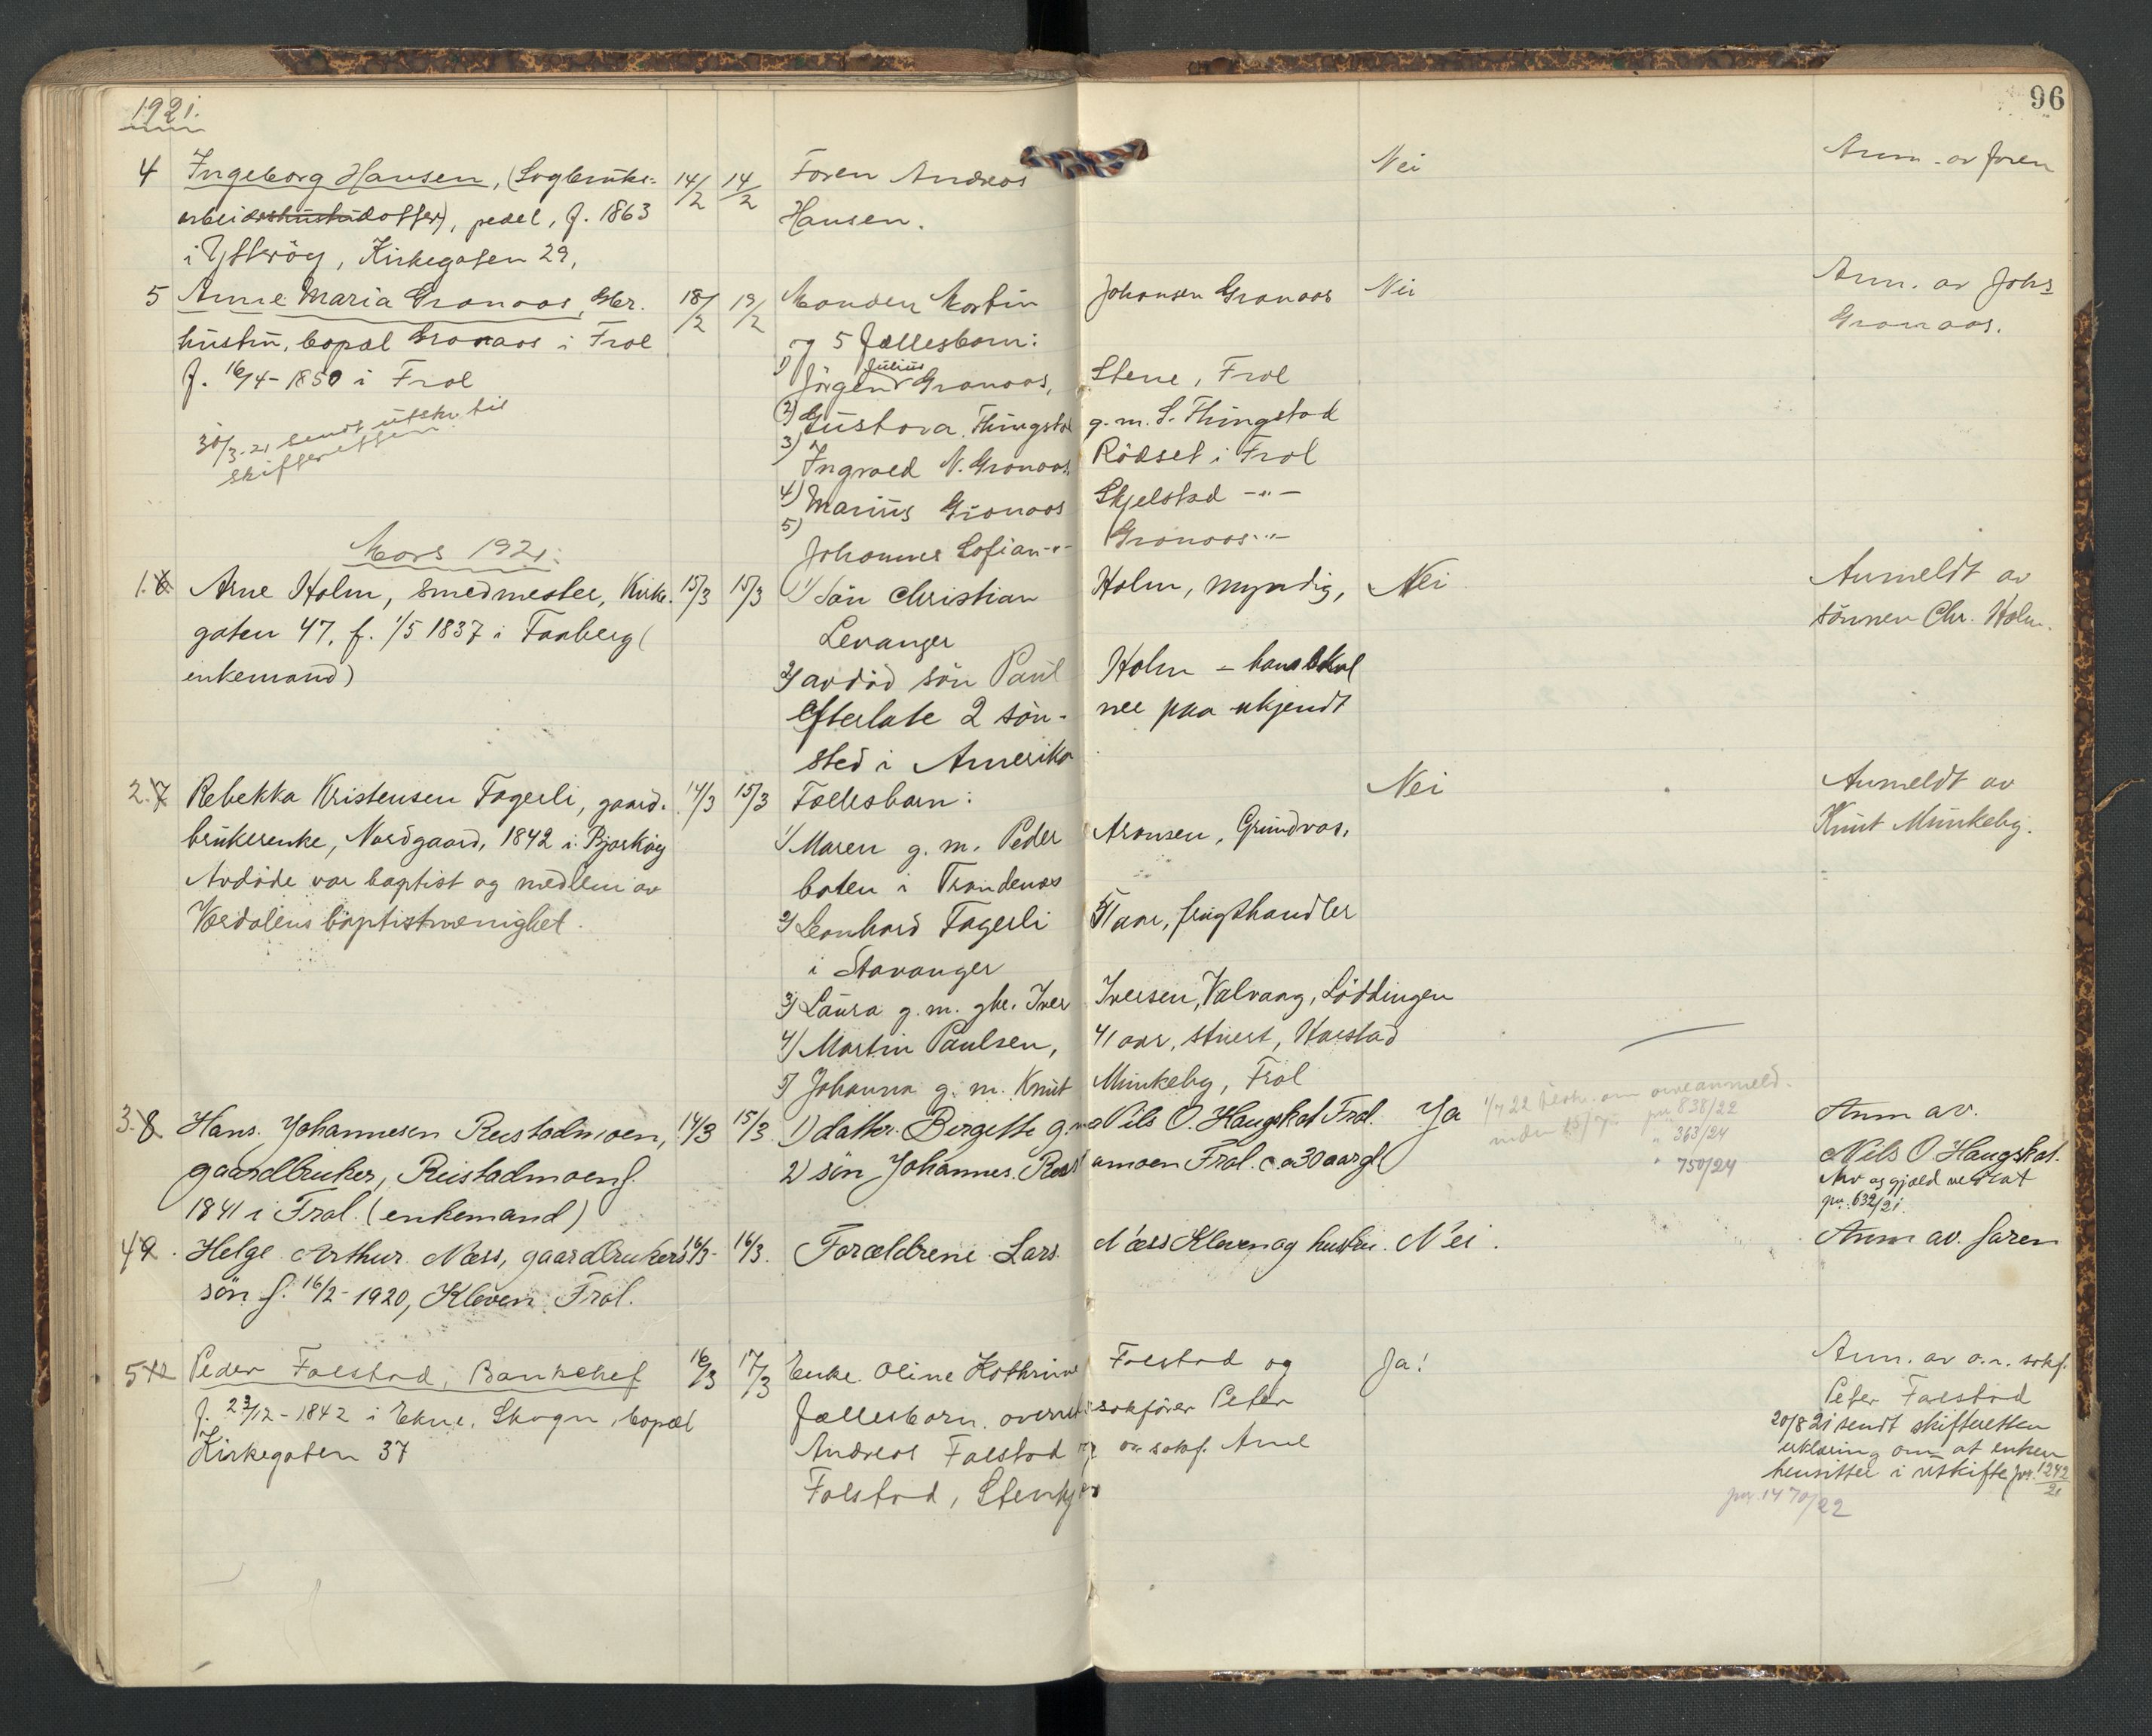 1921.
96
4 Ingeborg Hansen, (Sagbruks-
arbeiderhustrudatter), pedel, f. 1863
i Ytterøy, Kirkegaten 29,
14/2 14/2
Faren Andreas
Hansen.
Nei
Anm. av faren
5 Anne Maria Granaas, Gbr.
hustru, bopæl Granaas i Frol
f. 16/4-1850 i Frol
30/3-21 sendt utskr. til
skifteretten
18/2 19/2
Manden Martin Johansen Granaas
og 5 fællesbarn:
1) Jørgen Julius Granaas, Stene, Frol
2) Gustava Thingstad g.m. S. Thingstad
3) Ingvald N. Granaas, Rødset i Frol
4) Marius Granaas Skjelstad -"-
5) Johannes Sofian -"- Granaas -"-
Nei
Anm. av Johs
Granaas.
Mars 1921.
1. 6 Arne Holm, smedmester, Kirke-
gaten 47, f. 1/5 1837 i Faaberg (
enkemand)
15/3 15/3
1) Søn Christian Holm, myndig,
Levanger
2) avdød søn Paul Holm - hans
efterlate 2 søn- ner paa ukjendt
sted i Amerika
Nei
Anmeldt av
sønnen Chr. Holm.
2. 7 Rebekka Kristensen Fagerli, gaard-
brukerenke, Nordgaard, 1842 i Bjarkøy
Avdøde var baptist og medlem av
Værdalens baptistmenighet.
14/3 15/3
Fællesbarn:
1) Maren g. m. Peder Aronsen, Grundvas,
boten i Trondenæs
2) Leonhard Fagerli 51 aar, frugthandler
i Stavanger
3) Laura g. m. gbr. Iver Iversen, Valvaag, Lødingen
4) Martin Paulsen, 41 aar, stuert, Harstad
5) Johanna g. m. Knut Munkeby, Frol
Nei
Anmeldt av
Knut Munkeby.
3. 8 Hans Johannesen Reistadmoen,
gaardbruker, Reistadmoen f.
1841 i Frol. (enkemand)
14/3 15/3
1) datter Birgitte g. m. Nils O. Haugskot Frol.
2) søn Johannes Reistadmoen Frol. ca 30 aar gl
Ja
838/22
" 363/24
" 750/24
Anm av.
Nils O. Haugskot.
Arv og gjæld vedtat
jnr. 632/21.
4 9. Helge Arthur Næss, gaardbrukers
søn f. 16/2-1920, Kleven Frol.
16/3- 16/3.
Forældrene Lars Næss Kleven og hustru.
Nei.
Anm av. faren
5 10 Peder Falstad, Bankchef
f. 23/12-1842 i Ekne, Skogn, bopæl
Kirkegaten 37
16/3 17/3
Enke Oline Kathrine Falstad og
fællesbarn overretssakfører Peter
Andreas Falstad og o.r. sakf. Arne
Falstad, Stenkjær
Ja!
Anm. av o.r. sakf.
Peter Falstad
20/8 21 sendt skifteretten
erklæring om at enken
hensitter i uskifte jnr. 1242/21
jnr. 1470/22